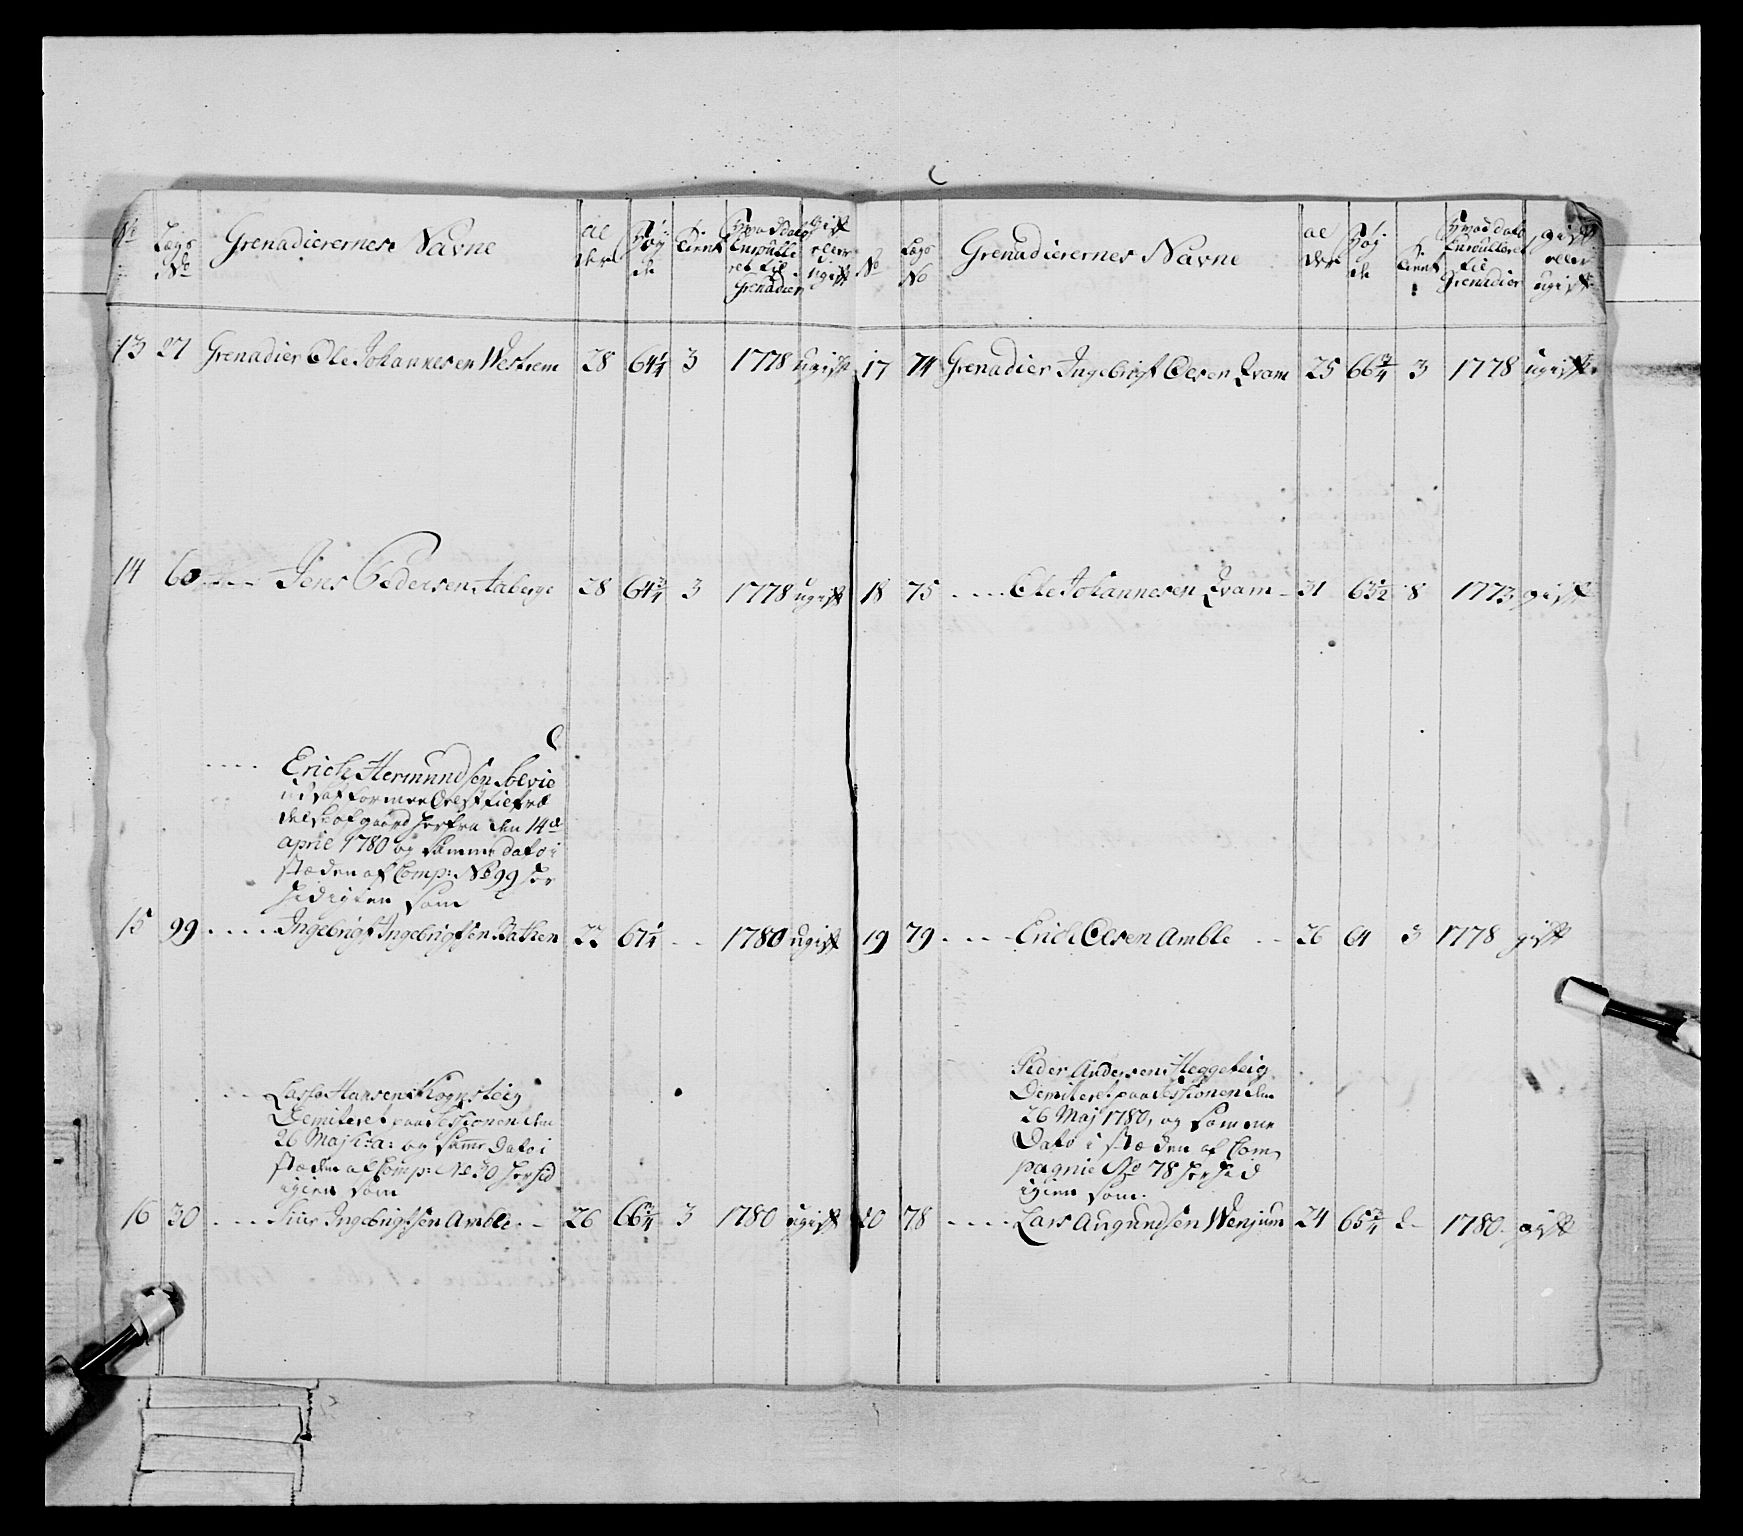 No
Lægs No
Grenadierernes Navne
al der
Høy de
tient
Hvad dato Enroulle ret til Grenadier
gift eller ugift
13 27 Grenadier Ole Johannesen Westrem 28 64 1/4 3 1778 ugift
14 60 .... Jens Pedersen Aaberge 28 64 3/4 3 1778 ugift
.... Erich Hermundsen Solvie
den 14de
april 1780 og samme dato i
stæden af Comp: No 99 for
hidigten som
15 99 .... Ingebrigt Ingebrigtsen 22 67 1/4 .. 1780 ugift
... Lasse Hansen
Demiteret paa Sessionen den
26 Maj h: a: og samme Dato i
stæden af Comp: No 30 forhid
igien som
16 30 .... Siur Ingebrigtsen Amble 26 66 3/4 3 1780 ugift
No
Lægs No
Grenadierernes Navne
al der
Høy de
tient
Hvad dato Enroulleret til Grenadier
gift eller ugift
17 74 Grenadier Ingebrigt Olsen Qvam 25 66 3/4 3 1778 ugift
18 75 .... Ole Johannesen Qvam 31 63 1/2 8 1773 gift
19 79 .... Erich Olsen Amble .. 26 64 3 1778 gift
Peder Andersen Heggeteig
Demiteret paa Sessionen den
26 Maj 1780, og samme
Dato i stæden af Com
pagnie No 78 forhid
igien som.
20 78 .... Lars Augundsen Wenjum 24 65 3/4 2 1780 gift